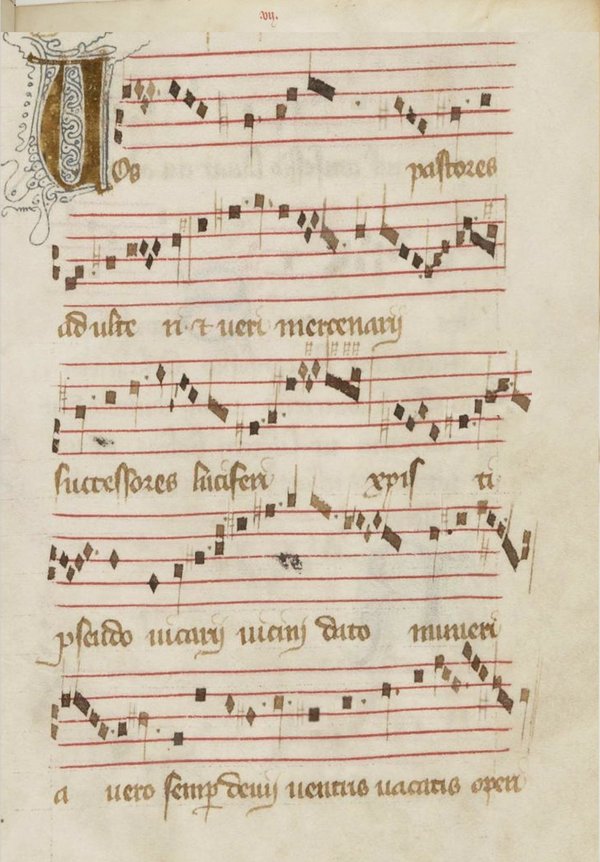 .vij.
Uos pastores
adulte ri· et veri mercenarij
successores luciferi xpis ti
pseudo vicarij vicinj dato muneri
a vero semp devij ventris vacatis operi